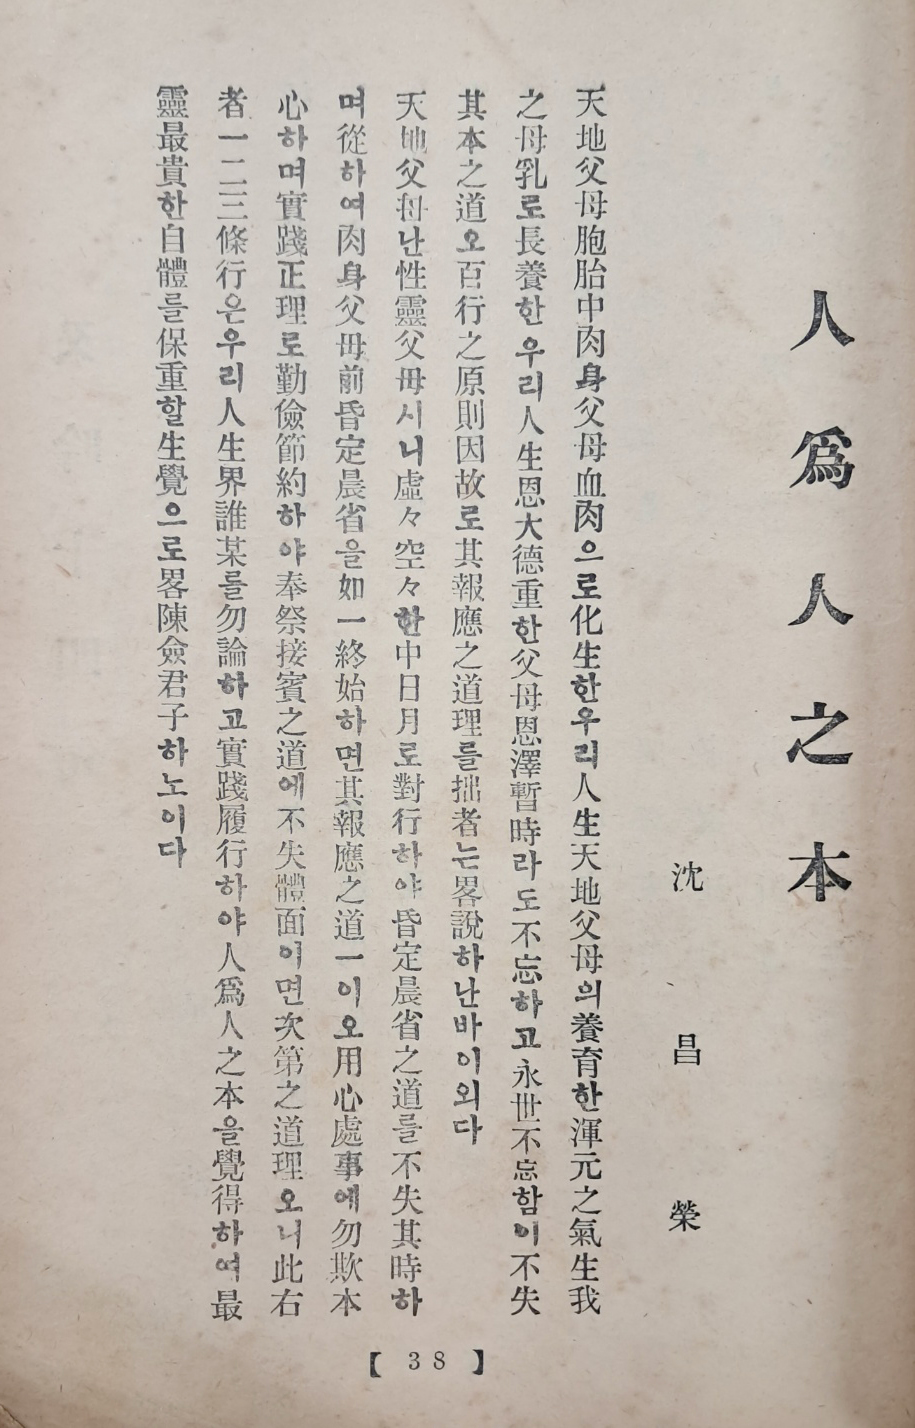 人爲人之本
沈昌榮
天地父母胞胎中肉身父母血肉으로化生한우리人生天地父母의養育한渾元之氣生我
之母乳로長養한우리人生恩大德重한父母恩澤暫時라도不忘하고永世不忘함이不失
其本之道오百行之原則因故로其報應之道理를拙者는畧說하난바이외다
天地父母난性靈父母시니虛々空々한中日月로對行하야昏定晨省之道를不失其時하
며從하여肉身父母前昏定晨省을如一終始하면其報應之道一이오用心處事에勿欺本
心하며實踐正理로勤儉節約하야奉祭接賓之道에不失體面이면次第之道理오니此右
者一二三條行은우리人生界誰某를勿論하고實踐履行하야人爲人之本을覺得하여最
靈最貴한自體를保重할生覺으로畧陳僉君子하노이다
【38】